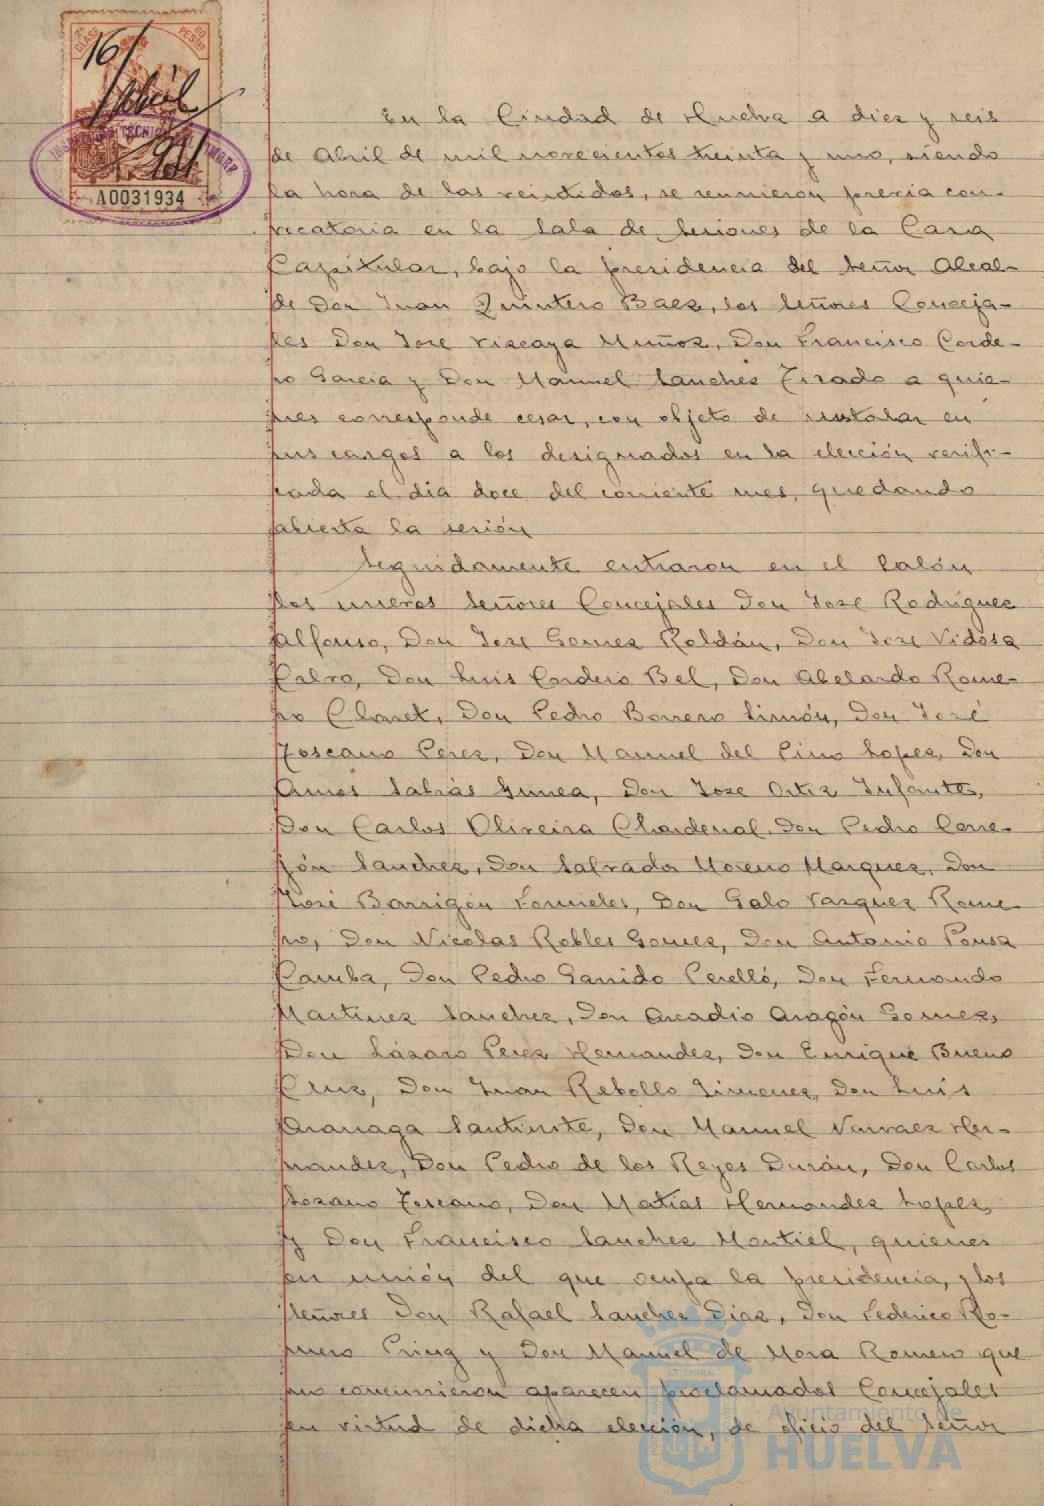 2ª CLASE
60 PESTAS
16/
Abril
931
TECNICA TIMBRE
A0031934
En la Ciudad de Huelva a diez y seis
de Abril de mil novecientos treinta y uno, siendo
la hora de las veintidos, se reunieron previa con-
vocatoria en la Sala de Sesiones de la Casa
Capitular, bajo la presidencia del Señor Alcal-
de Don Juan Quintero Baez, los Señores Conceja-
les Don Jose Vizcaya Muñoz, Don Francisco Corde-
ro Garcia y Don Manuel Sanchez Tirado a quie-
nes corresponde cesar, con objeto de instalar en
sus cargos a los designados en la elección verifi-
cada el dia doce del corriente mes, quedando
abierta la sesión
Seguidamente entraron en el Salón
los nuevos Señores Concejales Don Jose Rodriguez
Alfonso, Don Jose Gomez Roldán, Don Jose Vidosa
Calvo, Don Luis Cordero Bel, Don Abelardo Rome-
ro Claret, Don Pedro Borrero Limón, Don José
Toscano Perez, Don Manuel del Pino Lopez, Don
Amos Sabrás Gurrea, Don Jose Ortiz Infante,
Don Carlos Oliveira Chardenal, Don Pedro Cerre-
jón Sanchez, Don Salvador Moreno Marquez, Don
José Barrigón Fornieles, Don Galo Vazquez Rome-
ro, Don Nicolas Robles Gomez, Don Antonio Pousa
Camba, Don Pedro Garrido Perelló, Don Fernando
Martinez Sanchez, Don Arcadio Aragón Gomez,
Don Lázaro Perez Hernandez, Don Enrique Bueno
Cruz, Don Juan Rebollo Jimenez, Don Luis
Aranaga Santurste, Don Manuel Narvaez Her-
nandez, Don Pedro de los Reyes Durán, Don Carlos
Lozano Toscano, Don Matias Hernandez Lopez,
y Don Francisco Sanchez Montiel, quienes
en unión del que ocupa la presidencia, y los
señores Don Rafael Sanchez Diaz, Don Federico Ro-
mero Pring y Don Manuel de Mora Romero que
no concurrieron aparecen proclamados Concejales
en virtud de dicha elección, de oficio del Señor
Ayuntamiento de
HUELVA